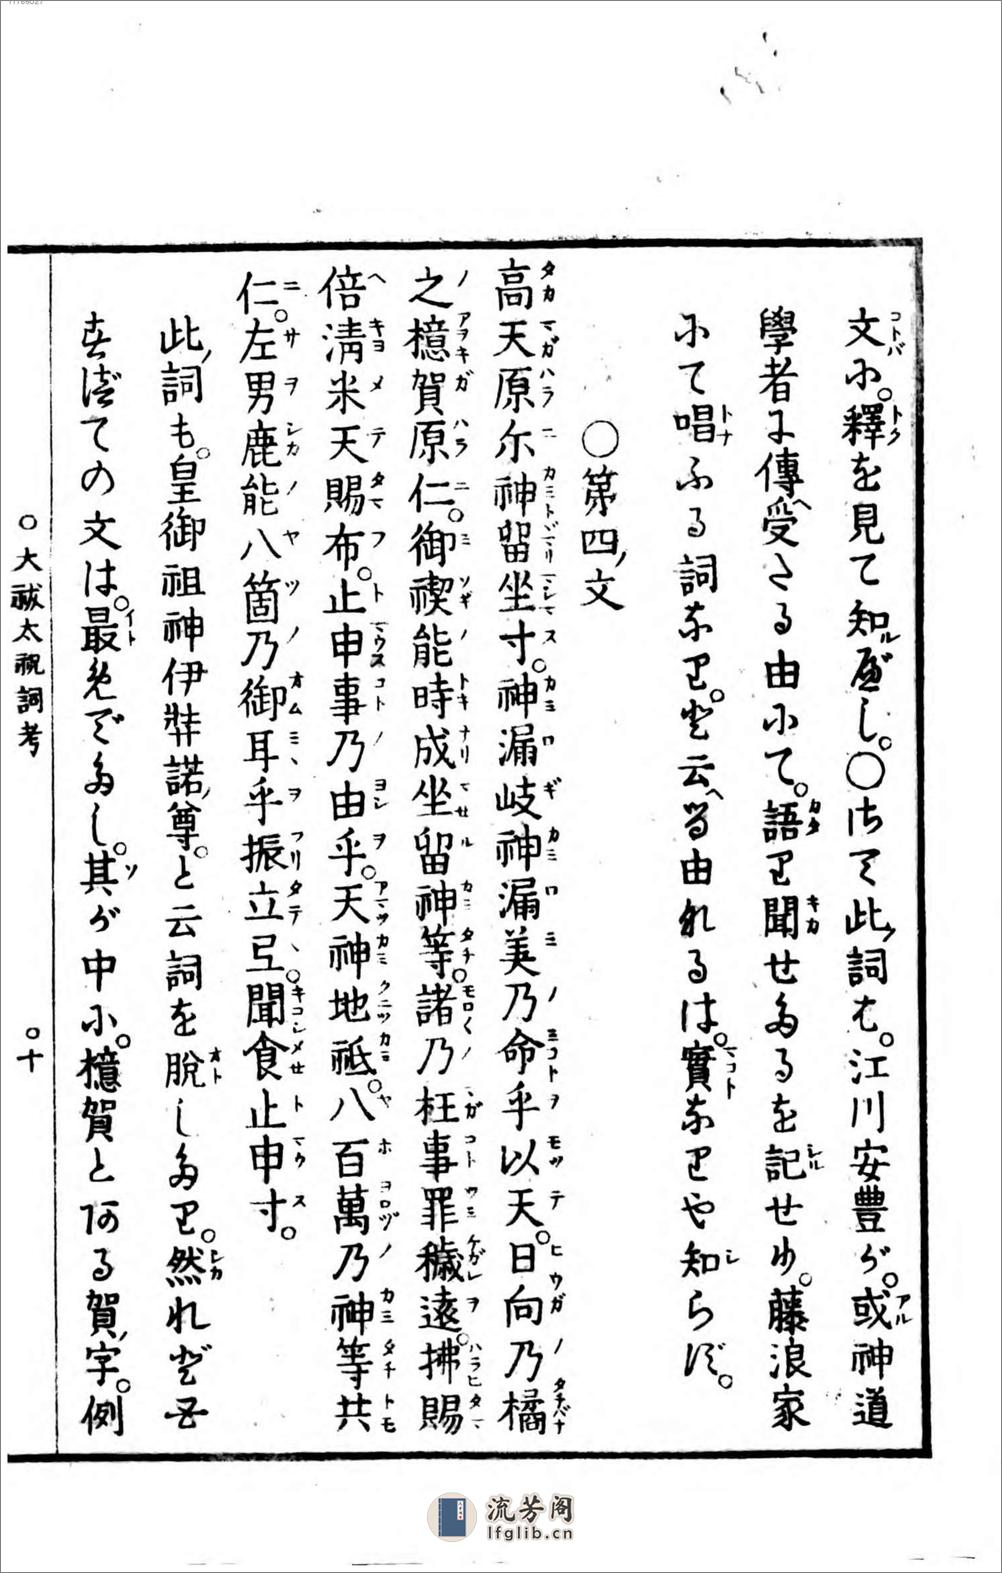 文に。釋を見て知べし。○さて此詞は。江川安豊が。或神道
學者に傳受たる由にて。語り聞せたるを記せり。藤浪家
にて唱ふる詞なり。と云る由なれるは。實なりや知らず。
○第四文
高天原尓神留坐寸。神漏岐神漏美乃命乎以天。日向乃橘
之檍賀原仁。御禊能時成坐留神等。諸乃枉事罪穢遠。拂賜
倍淸米天賜布。止申事乃由乎。天神地祇。八百萬乃神等共
仁。左男鹿能八箇乃御耳乎振立弖。聞食止申寸。
此詞も。皇御祖神伊弉諾尊。と云詞を脱したり。然れど
すべての文は。最めでたし。其が中に。檍賀とある賀字。例
○大祓太祝詞考
○十
流芳阁
lfglib.cn